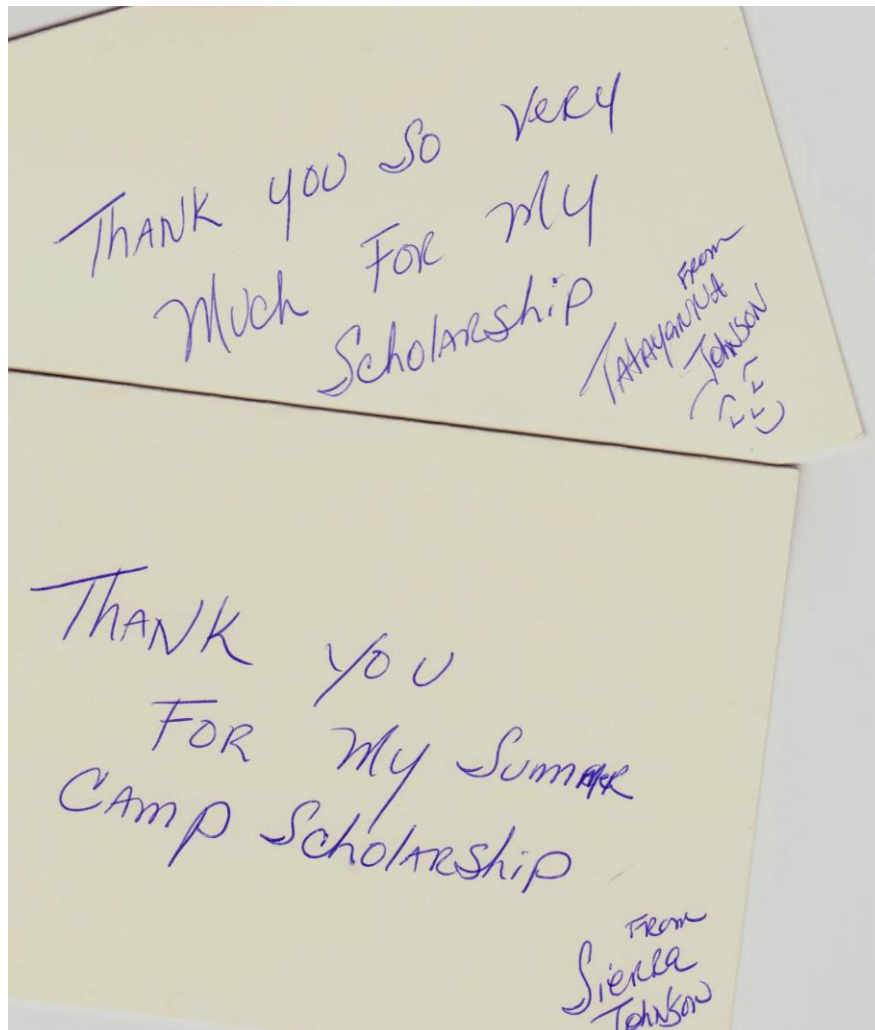 Thank you so very
much for my
Scholarship
From
Tatayanna
Johnson
Thank you
For my Summer
Camp Scholarship
From
Sierra
Johnson